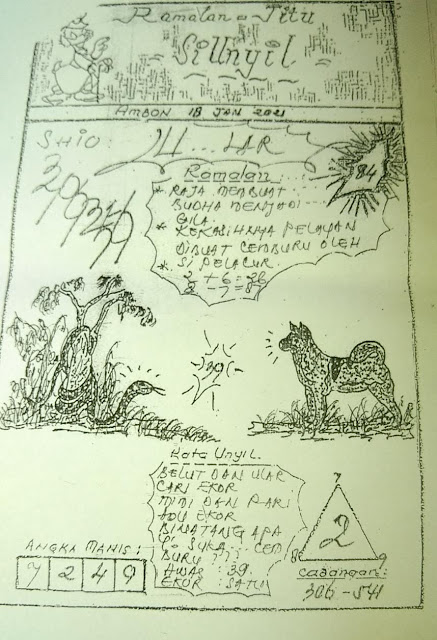 Ramalan = Titu
SiUnyil
AMBON 18 JAN 2021
SHIO:
LAR
84
Ramalan:
* RAJA MEMBUAT
BUDHA MENJADI
GILA.
* KEKASIHNYA PELAYAN
DIBUAT CEMBURU OLEH
* SI PELACUR.
Kata Unyil.
BELUT DAN ULAR
CARI EKOR
MIMI DAN PARI
ADU EKOR
BINATANG APA
SUKA CEM
BURU ???
AWAS : 39.
EKOR : SATU
ANGKA MANIS:
7 2 4 9
7
2
8 9
Cadangan:
306 - 541